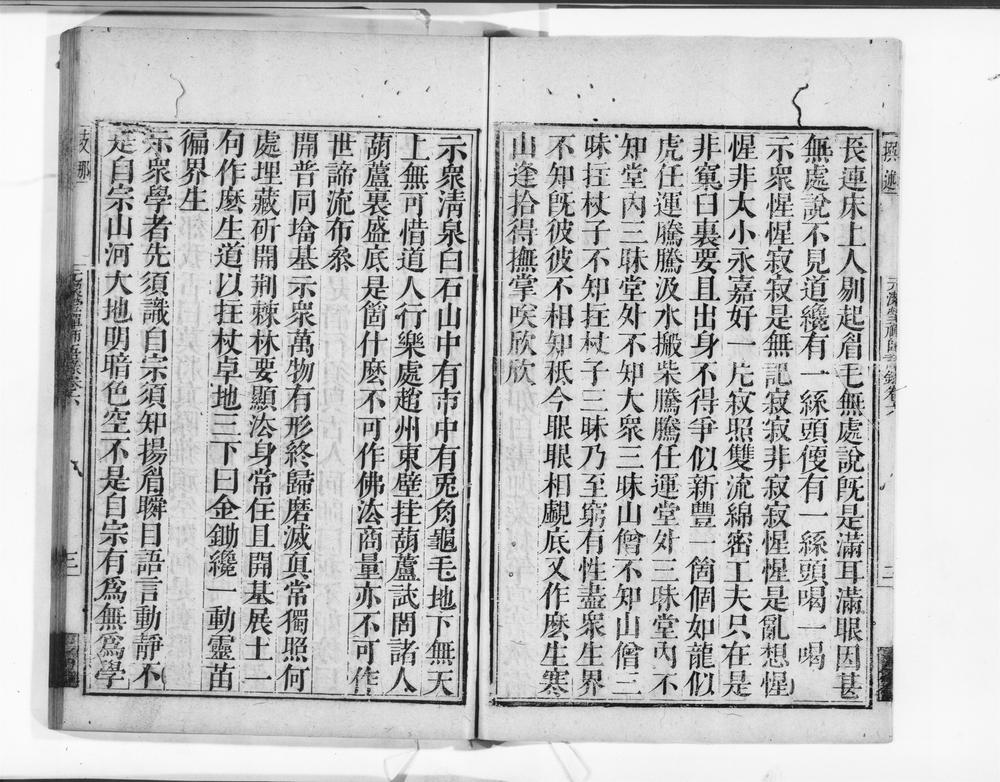 長連床上人剔起眉毛無處說既是滿耳滿眼因甚
無處說不見道纔有一絲頭便有一絲頭喝一喝
示衆惺惺寂寂是無記寂寂非寂寂惺惺是亂想惺
惺非大小永嘉好一片寂照雙流綿密工夫只在是
非窠臼裏要且出身不得爭似新豐一箇個如龍似
虎任運騰騰汲水搬柴騰騰任運堂外三昧堂內不
知堂內三昧堂外不知大衆三昧山僧不知山僧三
昧拄杖子不知拄杖子三昧乃至窮有性盡衆生界
不知既彼彼不相知秪今眼眼相覷底又作麽生寒
山逢拾得撫掌笑欣欣
示衆淸泉白石山中有市中有兎角龜毛地下無天
上無可惜道人行樂處趙州東壁挂葫蘆試問諸人
葫蘆裏盛底是箇什麽不可作佛法商量亦不可作
世諦流布叅
開普同墖基示衆萬物有形終歸磨滅眞常獨照何
處埋藏斫開荆棘林要顯法身常住且開基展土一
句作麽生道以拄杖卓地三下曰金鋤纔一動靈苗
徧界生
示衆學者先須識自宗須知揚眉瞬目語言動靜不
是自宗山河大地明暗色空不是自宗有爲無爲學
三